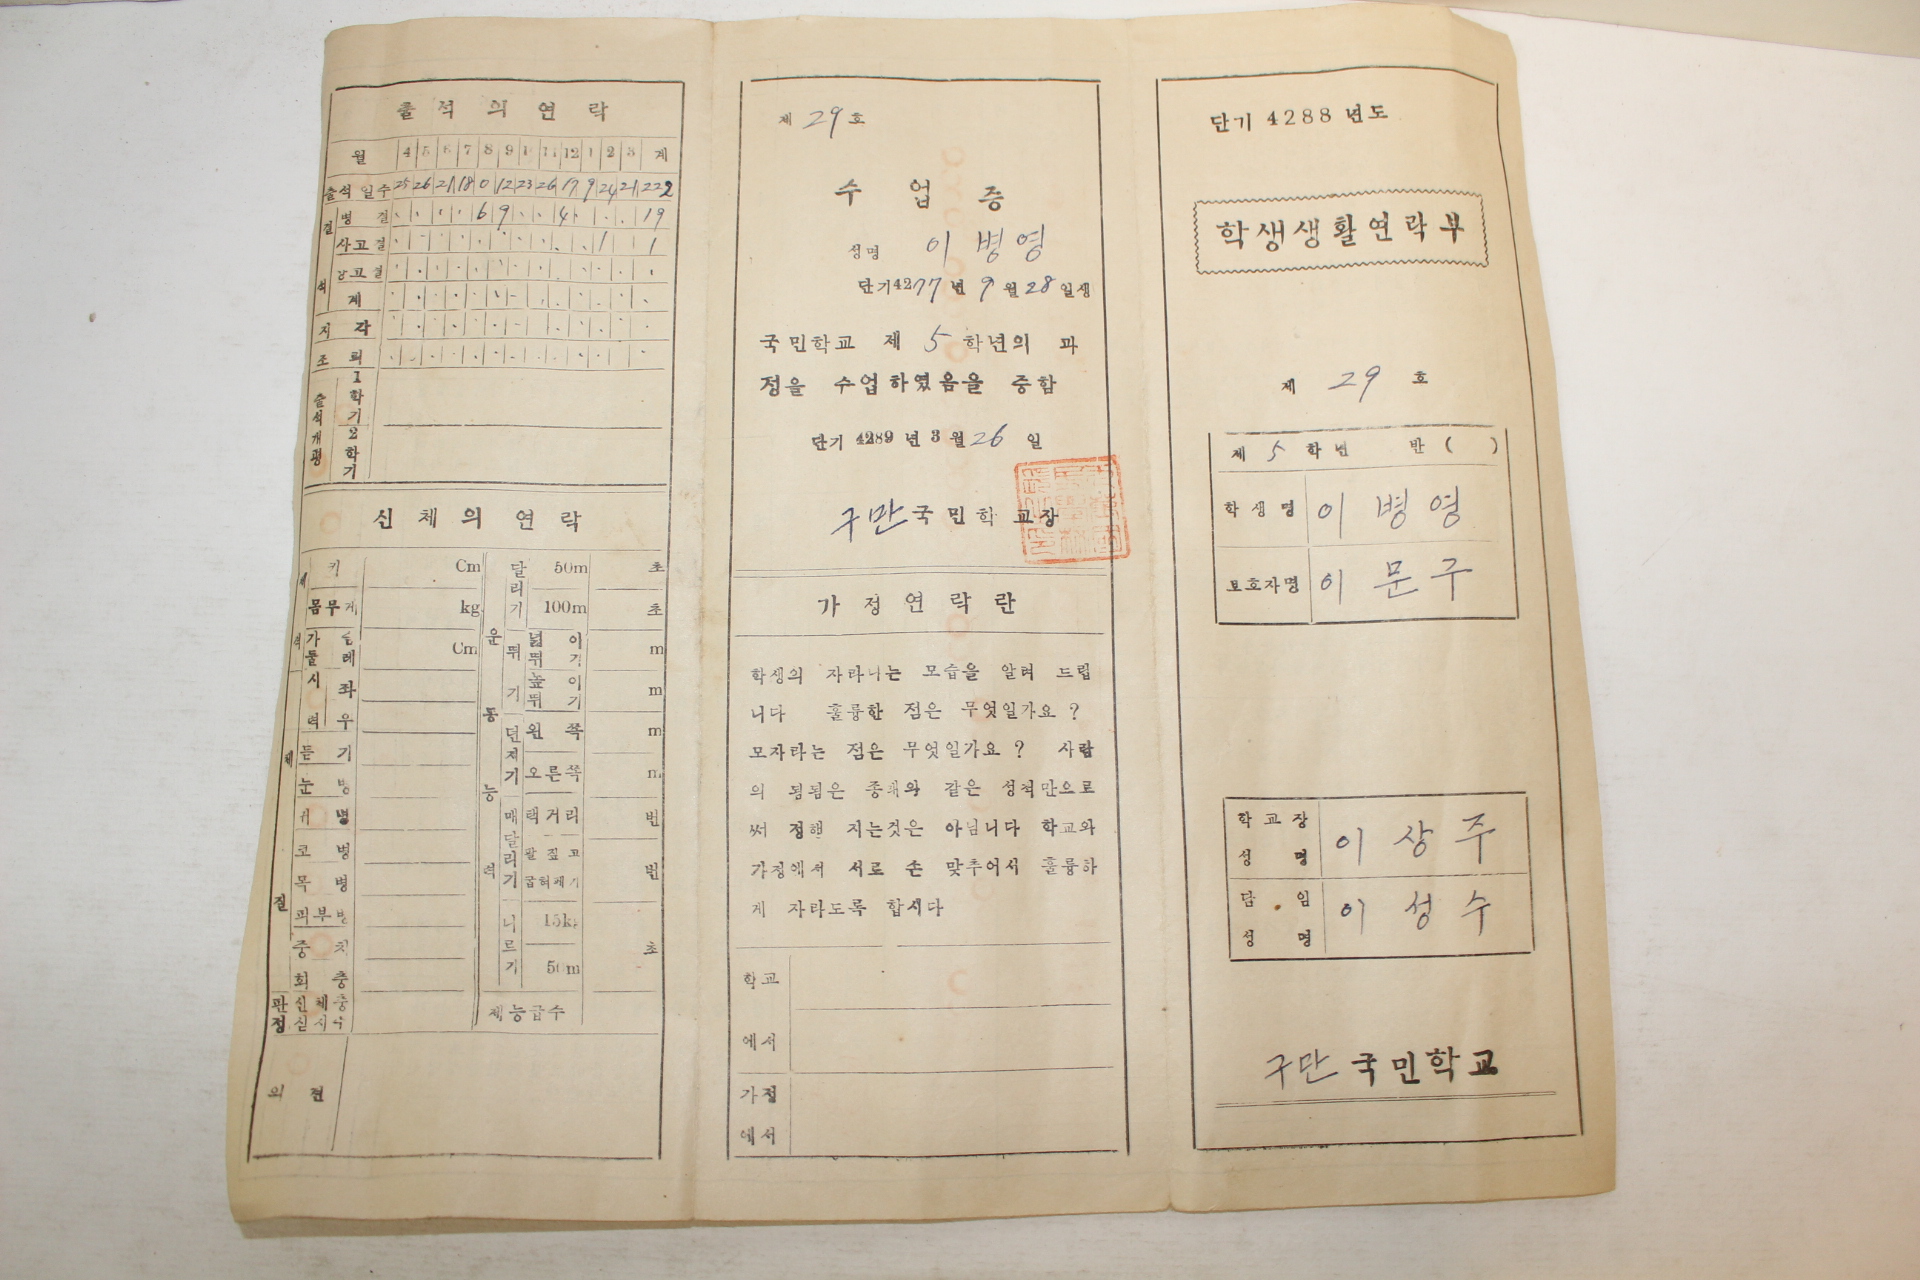 출석의연락
월 4 5 6 7 8 9 10 11 12 1 2 3 계
출석 일수 25 26 21 18 0 12 23 26 17 9 24 21 222
결석
병결 6 9 4 19
사고결 1 1
계
지각
조퇴
출석개평
1학기
2학기
신체의 연락
체격
키 Cm
몸무게 kg
가슴둘레 Cm
체질
시력 좌
우
듣기
눈병
귀병
코병
목병
피부병
충치
회충
판정
의견
운동능력
달리기 50m 초
100m 초
뛰기 넓이뛰기 m
높이뛰기 m
던지기 왼쪽 m
오른쪽 m
매달리기 턱거리 번
팔짚고 굽혀펴기 번
나르기 15kg 50m 초
체능급수
제 29 호
수업증
성명 이병영
단기4277년 9월 28일생
국민학교 제 5 학년의 과
정을 수업하였음을 증함
단기 4289년 3월 26일
구만국민학교장
가정연락란
학생의 자라나는 모습을 알려 드립
니다 훌륭한 점은 무엇일가요?
모자라는 점은 무엇일가요? 사람
의 됨됨은 종래와 같은 성적만으로
써 정해 지는것은 아닙니다 학교와
가정에서 서로 손 맞추어서 훌륭하
게 자라도록 합시다
학교
에서
가정
에서
단기 4288 년도
학생생활연락부
제 29 호
제 5 학년 반 ( )
학생명 이병영
보호자명 이문구
학교장
성명 이상주
담임
성명 이성수
구만국민학교